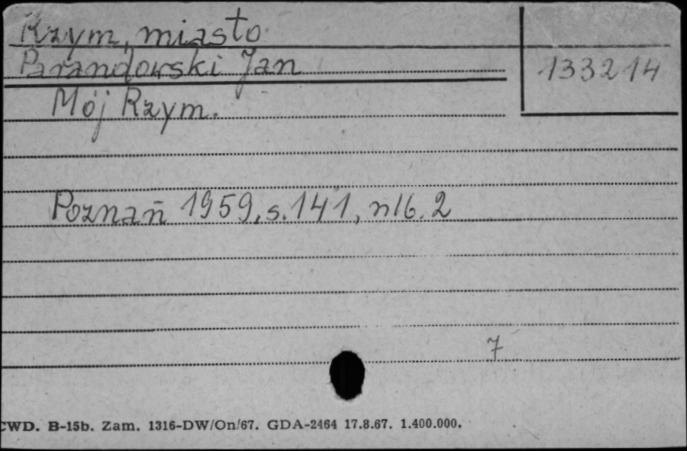 Rzym, miasto
Parandowski Jan
133214
Mój Rzym.
Poznań 1959, s. 141, nlb. 2
7
CWD. B-15b. Zam. 1316-DW/On/67. GDA-2464 17.8.67. 1.400.000.